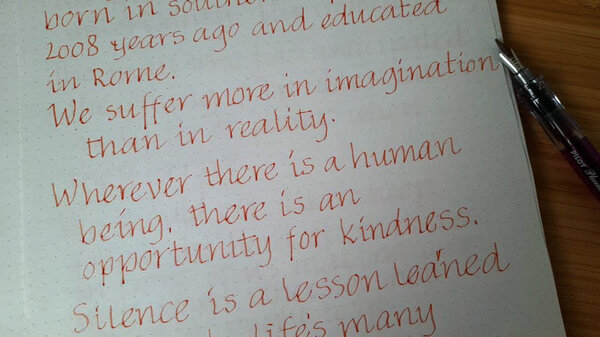 born in southern
2008 years ago and educated
in Rome.
We suffer more in imagination
than in reality.
Wherever there is a human
being, there is an
opportunity for kindness.
Silence is a lesson learned
life's many
PILOT